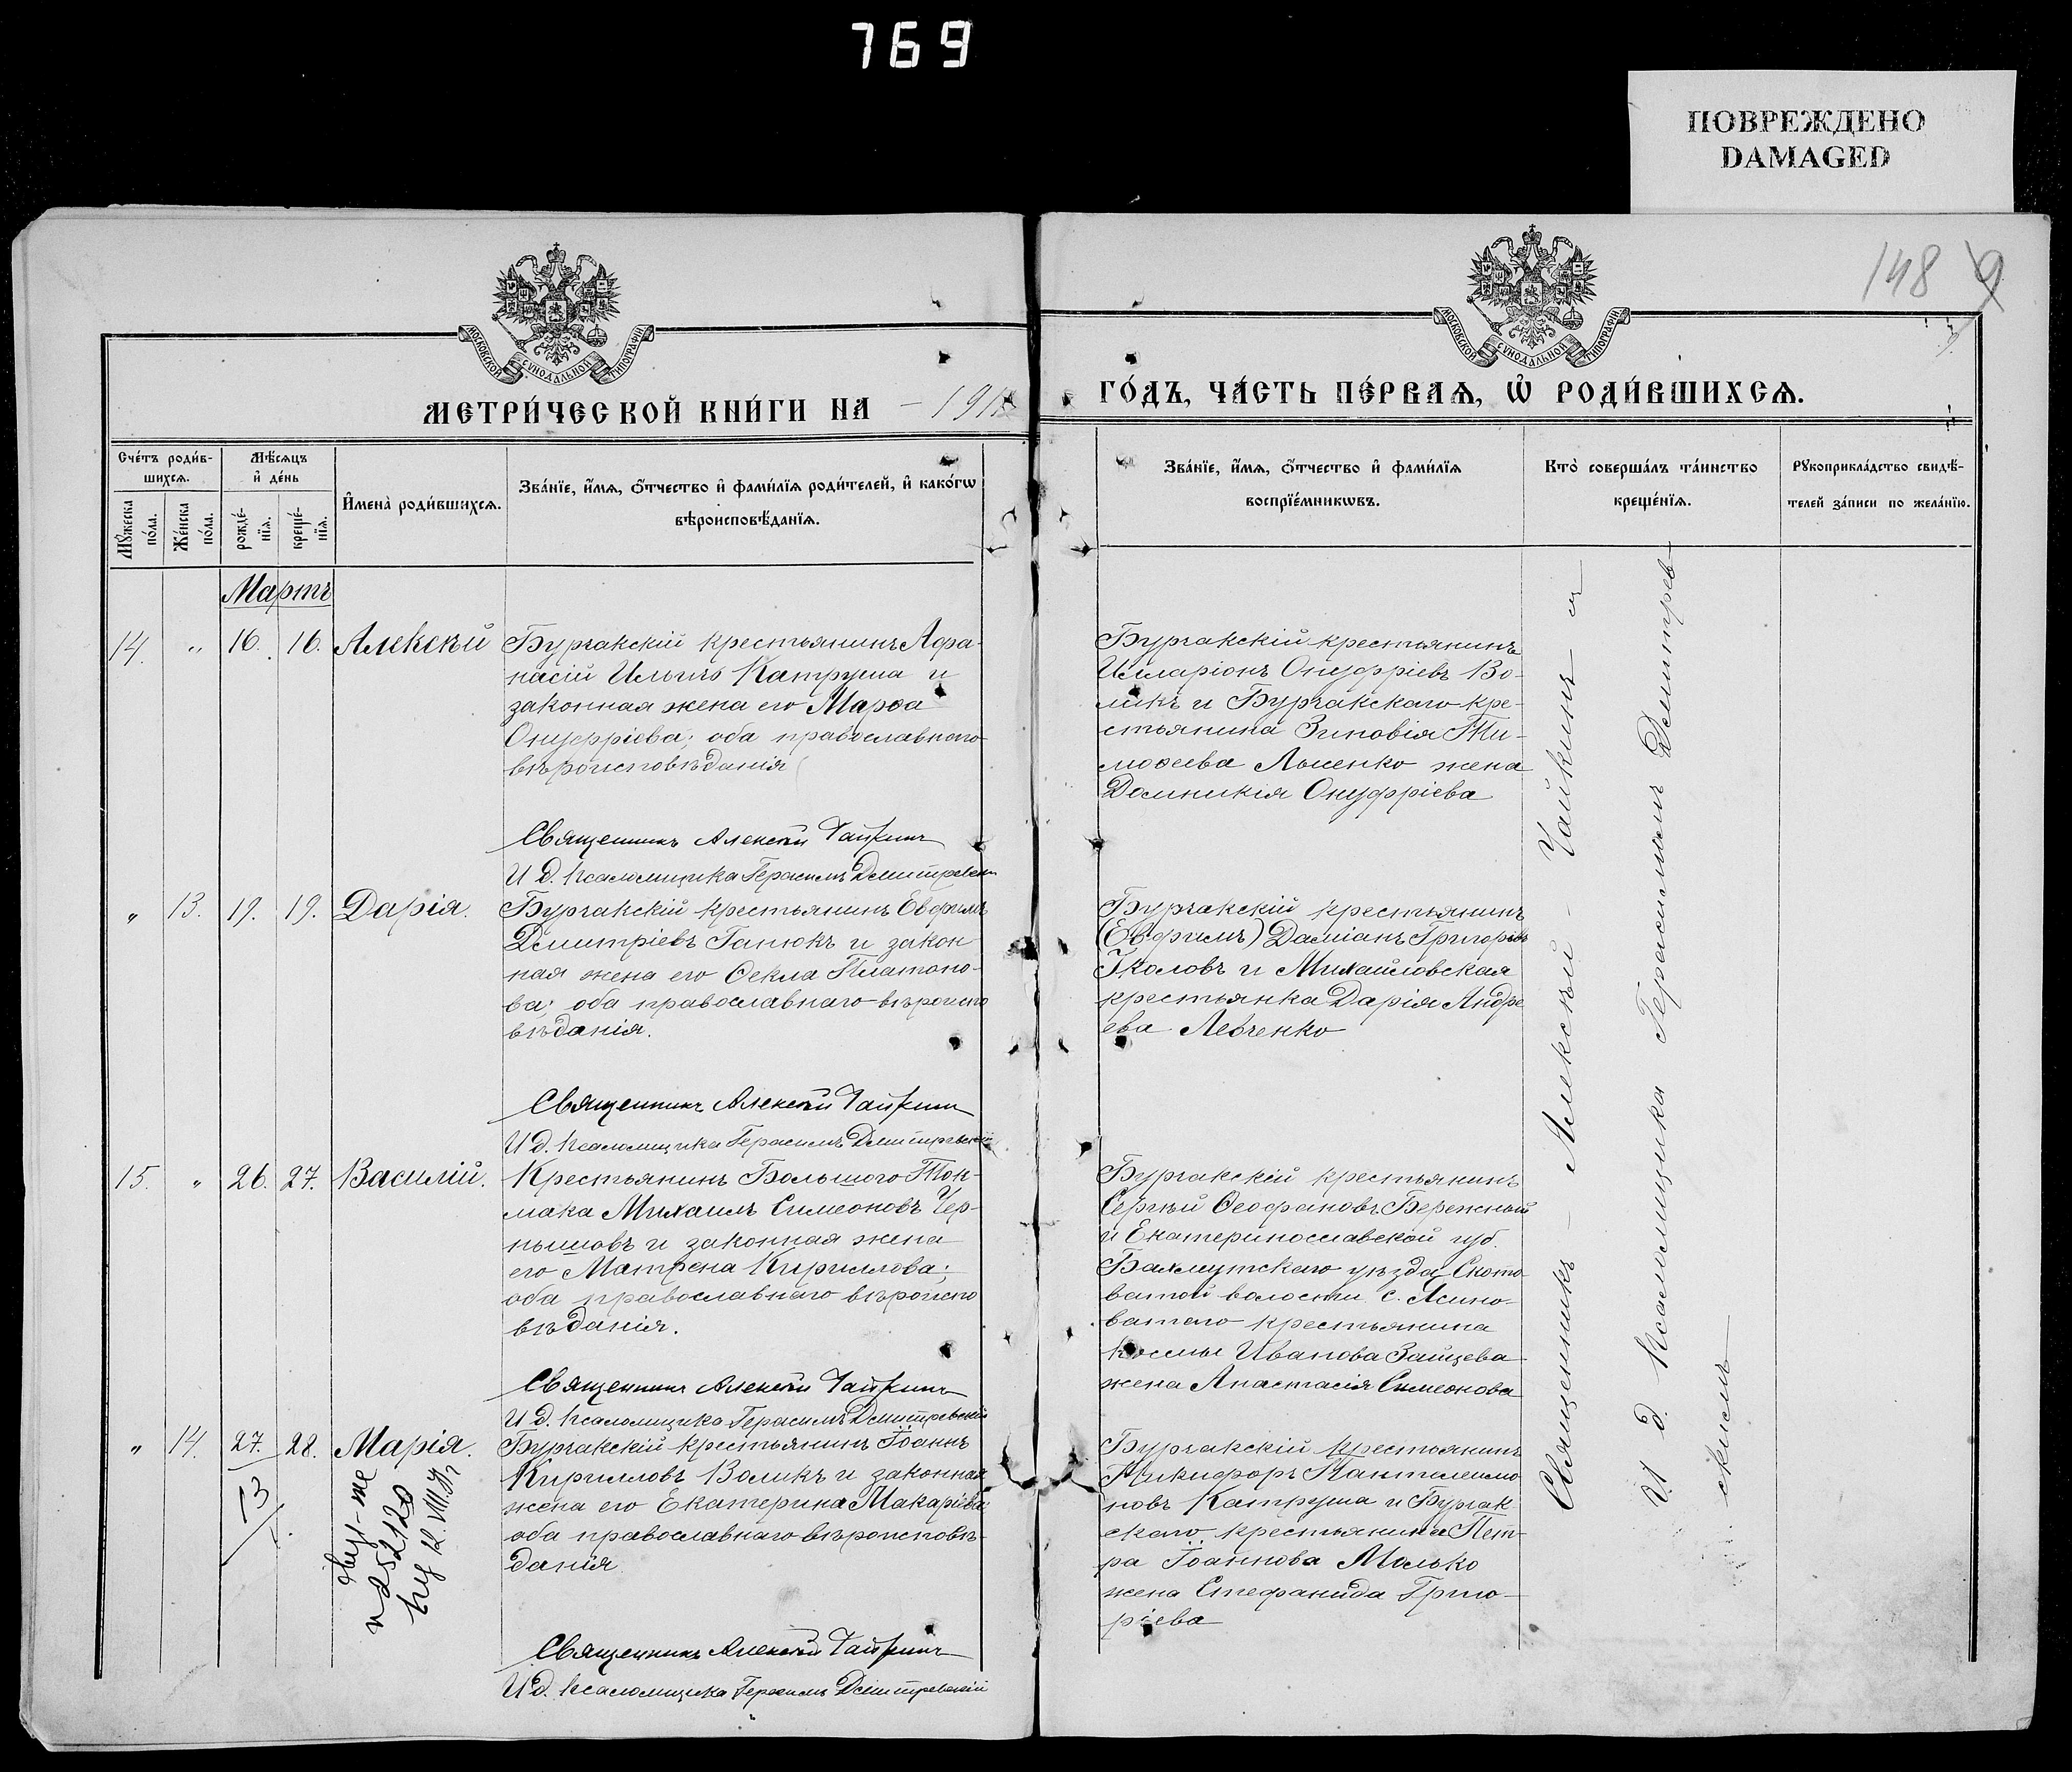 769
ПОВРЕЖДЕНО
DAMAGED
148
9
МОСКОВСКОЙ СѴНОДАЛЬНОЙ ТИПОГРАФІИ
МОСКОВСКОЙ СѴНОДАЛЬНОЙ ТИПОГРАФІИ
МЕТРИ́ЧЕСКОЙ КНИ́ГИ НА – 191
ГО́ДЪ, ЧА́СТЬ ПЕ́РВАѦ, Ѽ РОДИ́ВШИХСѦ.
Сче́тъ роди́в-
шихсѧ.
Мꙋ́жеска по́ла.
Же́нска по́ла.
Мѣ́сѧцъ
и҆ де́нь
рожде́-
нїѧ.
креще́-
нїѧ.
И҆мена̀ роди́вшихсѧ.
Зва́нїе, и҆́мѧ, ѻ҆́тчество и҆ фами́лїѧ роди́телей, и҆ како́гѡ
вѣроисповѣ́данїѧ.
Зва́нїе, и҆́мѧ, ѻ҆́тчество и҆ фами́лїѧ
воспрїе́мникѡвъ.
Кто̀ соверша́лъ та́инство
креще́нїѧ.
Рꙋкоприкла́дство свидѣ́-
телей за́писи по жела́нїю.
Мартъ
14. " 16. 16. Алексѣй
Бургакскій крестьянинъ Афа-
насій Ильичъ Катруша и
законная жена его Марѳа
Онуфріева; оба православнаго
вѣроисповѣданія
Священникъ Алексѣй Чайкинъ
И д. псаломщика Герасимъ Дмитревскій
Бургакскій крестьянинъ
Илларіонъ Онуфріевъ Во-
ликъ и Бургакскаго кре-
стьянина Зиновія Ти-
моѳеева Лысенко жена
Домникія Онуфріева
" 13. 19. 19. Дарія.
Бургакскій крестьянинъ Евфимъ
Дмитріевъ Ганюкъ и закон
ная жена его Ѳекла Платоно-
ва; оба православнаго вѣроиспо
вѣданія.
Священникъ Алексѣй Чайкинъ
И д. псаломщика Герасимъ Дмитревскій
Бургакскій крестьянинъ
(Евфимъ) Даміанъ Григорьевъ
и Михайловская
крестьянка Дарія Андре
ева Левченко
15. " 26. 27. Василій.
Крестьянинъ Большого Ток-
мака Михаилъ Симеоновъ Чер-
нышовъ и законная жена
его Матрона Кириллова;
оба православнаго вѣроиспо
вѣданія.
Священникъ Алексѣй Чайкинъ
И д. псаломщика Герасимъ Дмитревскій
Бургакскій крестьянинъ
Сергѣй Ѳеофановъ Бережный
и Екатеринославской губ.
Бахмутскаго уѣзда Ското-
ватой волости с. Ясино-
ватаго крестьянина
Космы Иванова Зайцева
жена Анастасія Симеонова
" 14. 27. 28. Марія.
13
Бургакскій крестьянинъ Іоаннъ
Кирилловъ Воликъ и законная
жена его Екатерина Макаріева
оба православнаго вѣроисповѣ-
данія
Священникъ Алексѣй Чайкинъ
И д. псаломщика Герасимъ Дмитревскій
Бургакскій крестьянинъ
Никифоръ Пантелеимо
новъ Катруша и Бургак
скаго крестьянина Пет-
ра Іоаннова Милько
жена Стефанида Григо-
ріева
Священникъ – Алексѣй – Чайкинъ – и
И д. псаломщика Герасимъ Дмитрев-
скимъ